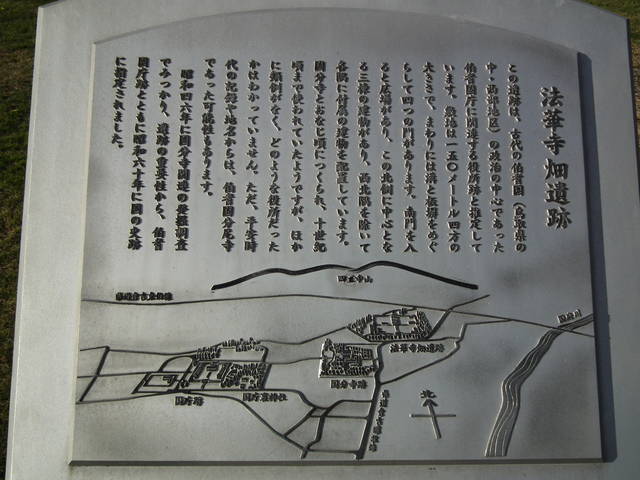 法華寺畑遺跡
この遺跡は、古代の伯耆国(鳥取県の
中・西部地区)の政治の中心であった
伯耆国庁に関連する役所跡と推定して
います。敷地は一五〇メートル四方の
大きさで、まわりには溝と板塀をめぐ
らして四つの門があります。南門を入
ると広場があり、この北側に中心とな
る三棟の建物があり、西北隅を除いて
各隅に付属の建物を配置しています。
国分寺とおなじ頃につくられ、十世紀
頃まで使われていたようですが、ほか
に類例がなく、どのような役所だった
かはわかっていません。ただ、平安時
代の記録や地名からは、伯耆国分尼寺
であった可能性もあります。
昭和四六年に国分寺関連の発掘調査
でみつかり、遺跡の重要性から、伯耆
国庁跡とともに昭和六十年に国の史跡
に指定されました。
四王寺山
県道倉吉東伯線
国府川
法華寺畑遺跡
国分寺跡
国庁跡
国庁裏神社
北